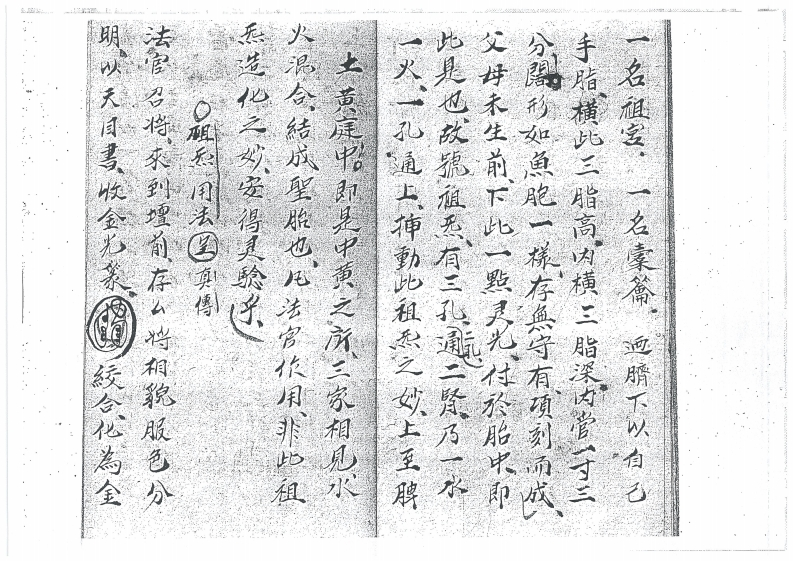 一名祖宫、一名橐籥、廵臍下以自己
手脂、橫此三脂高、内橫三脂深、内當一寸三
分闊、形如魚胞一樣、存無守有、頃刻而成、
父母未生前、下此一點灵光、付於胎中、即
此是也、故號祖炁、有三孔、二孔通二腎、乃一水
一火、一孔通上、挿動此祖炁之妙、上至脾
土黄庭中、即是中黄之所、三家相見、水
火混合、結成聖胎也、凡法官作用、非此祖
炁造化之妙、安得灵驗乎、
○祖炁用法 呈真傳
法官召將、來到壇前、存厶將相貌服色分
明、以天目書、收金光篆、 絞合、化為金